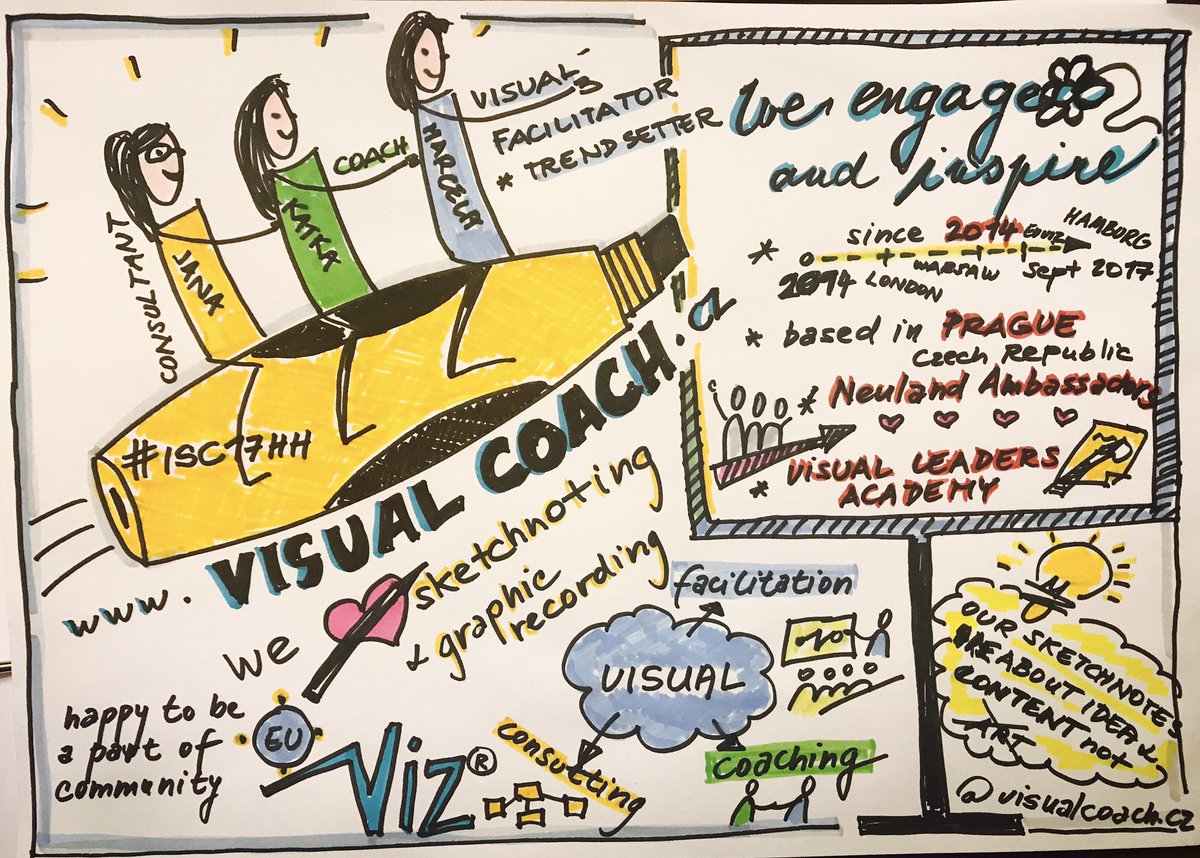 CONSULTANT
JANA
KATKA
COACH
MARCELA
VISUAL
FACILITATOR
* TRENDSETTER
#ISC17HH
www.VISUAL COACH.cz
we sketchnoting
& graphic
recording
happy to be
a part of
community
EU
Viz®
VISUAL
facilitation
consutting
coaching
We engage
and inspire
* since 2014
2014 LONDON WARSAW Sept 2017 HAMBURG
* based in PRAGUE
Czech Republic
* Neuland Ambassadors
* VISUAL LEADERS
ACADEMY
OUR SKETCHNOTES
ARE ABOUT IDEA &
CONTENT not
ART
@visualcoach.cz